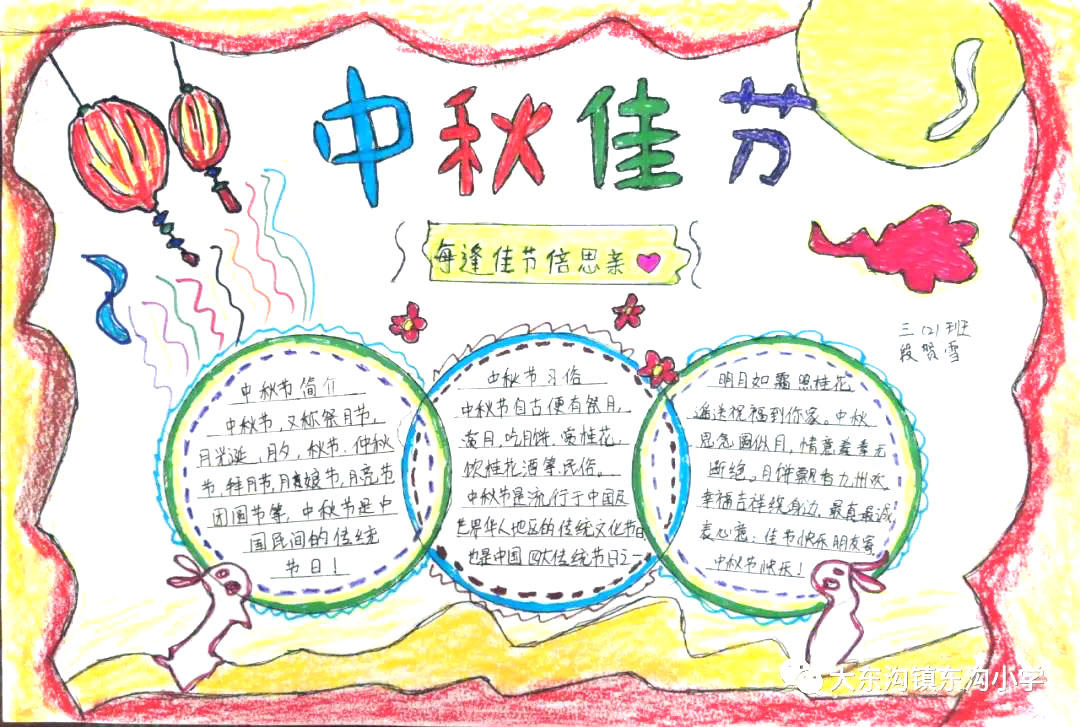 中秋佳节
每逢佳节倍思亲
三(2)班
段贺雪
中秋节简介
中秋节,又称祭月节,
月光诞、月夕、秋节、仲秋
节、拜月节、月娘节、月亮节
团圆节等,中秋节是中
国民间的传统
节日!
中秋节习俗
中秋节自古便有祭月,
赏月、吃月饼、赏桂花、
饮桂花酒等民俗。
中秋节是流行于中国民
世界华人地区的传统文化节日
也是中国四大传统节日之一
明月如霜照桂花
遥送祝福到你家。中秋
思念圆似月,情意牵牵无
断绝。月饼飘香九州欢,
幸福吉祥绕身边,最真最诚
表心意:佳节快乐朋友客
中秋节快乐!
大东沟镇东沟小学